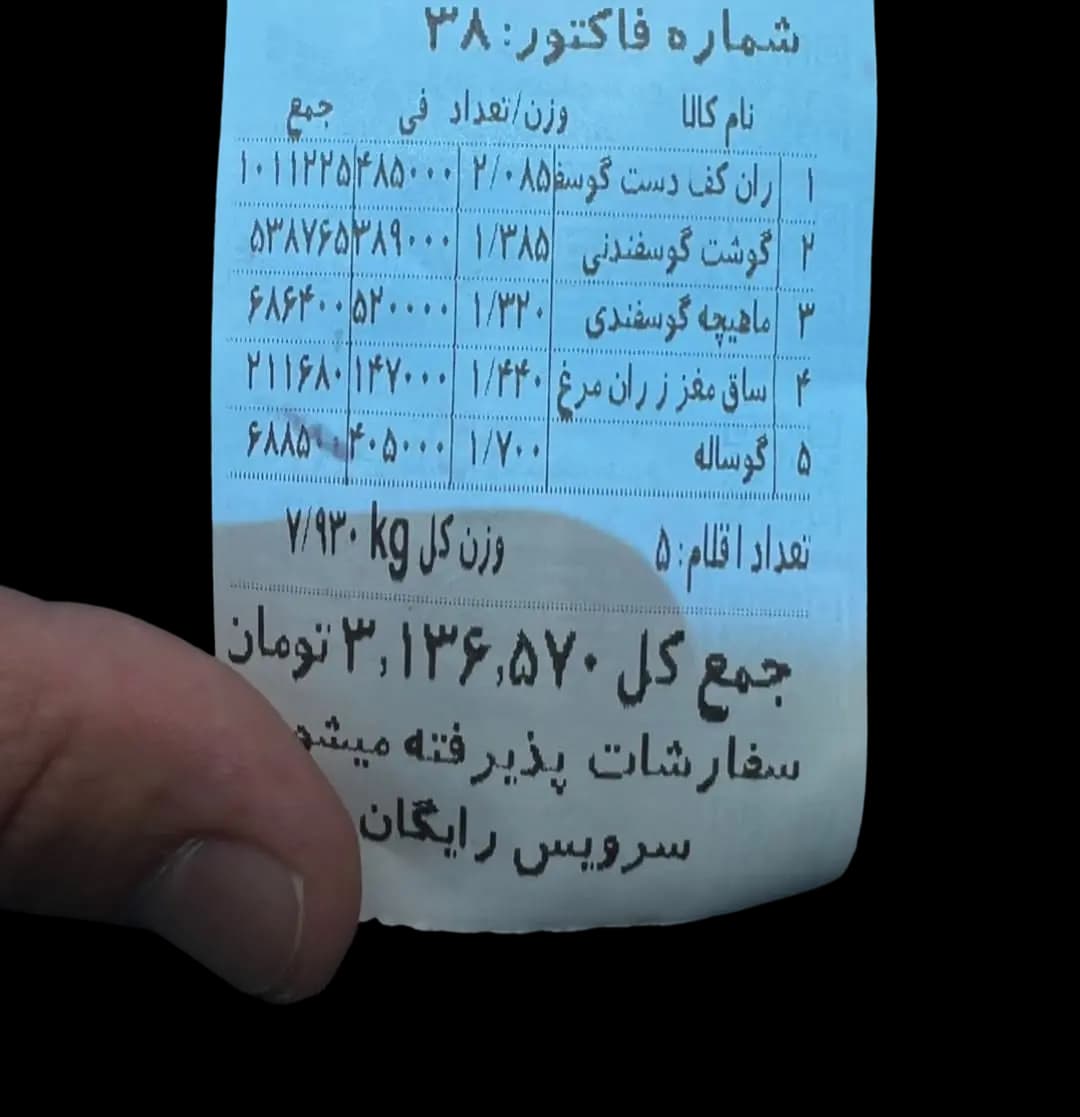 شماره فاکتور: ۳۸
نام کالا وزن/تعداد فی جمع
۱ ران کف دست گوسف ۲/۰۸۵ ۴۸۵۰۰۰ ۱۰۱۱۲۲۵
۲ گوشت گوسفندنی ۱/۳۸۵ ۳۸۹۰۰۰ ۵۳۸۷۶۵
۳ ماهیچه گوسفندی ۱/۳۲۰ ۵۲۰۰۰۰ ۶۸۶۴۰۰
۴ ساق مغز ز ران مرغ ۱/۴۴۰ ۱۴۷۰۰۰ ۲۱۱۶۸۰
۵ گوساله ۱/۷۰۰ ۴۰۵۰۰۰ ۶۸۸۵۰۰
تعداد اقلام: ۵ وزن کل ۷/۹۳۰ kg
جمع کل ۳,۱۳۶,۵۷۰ تومان
سفارشات پذیرفته میشو
سرویس رایگان